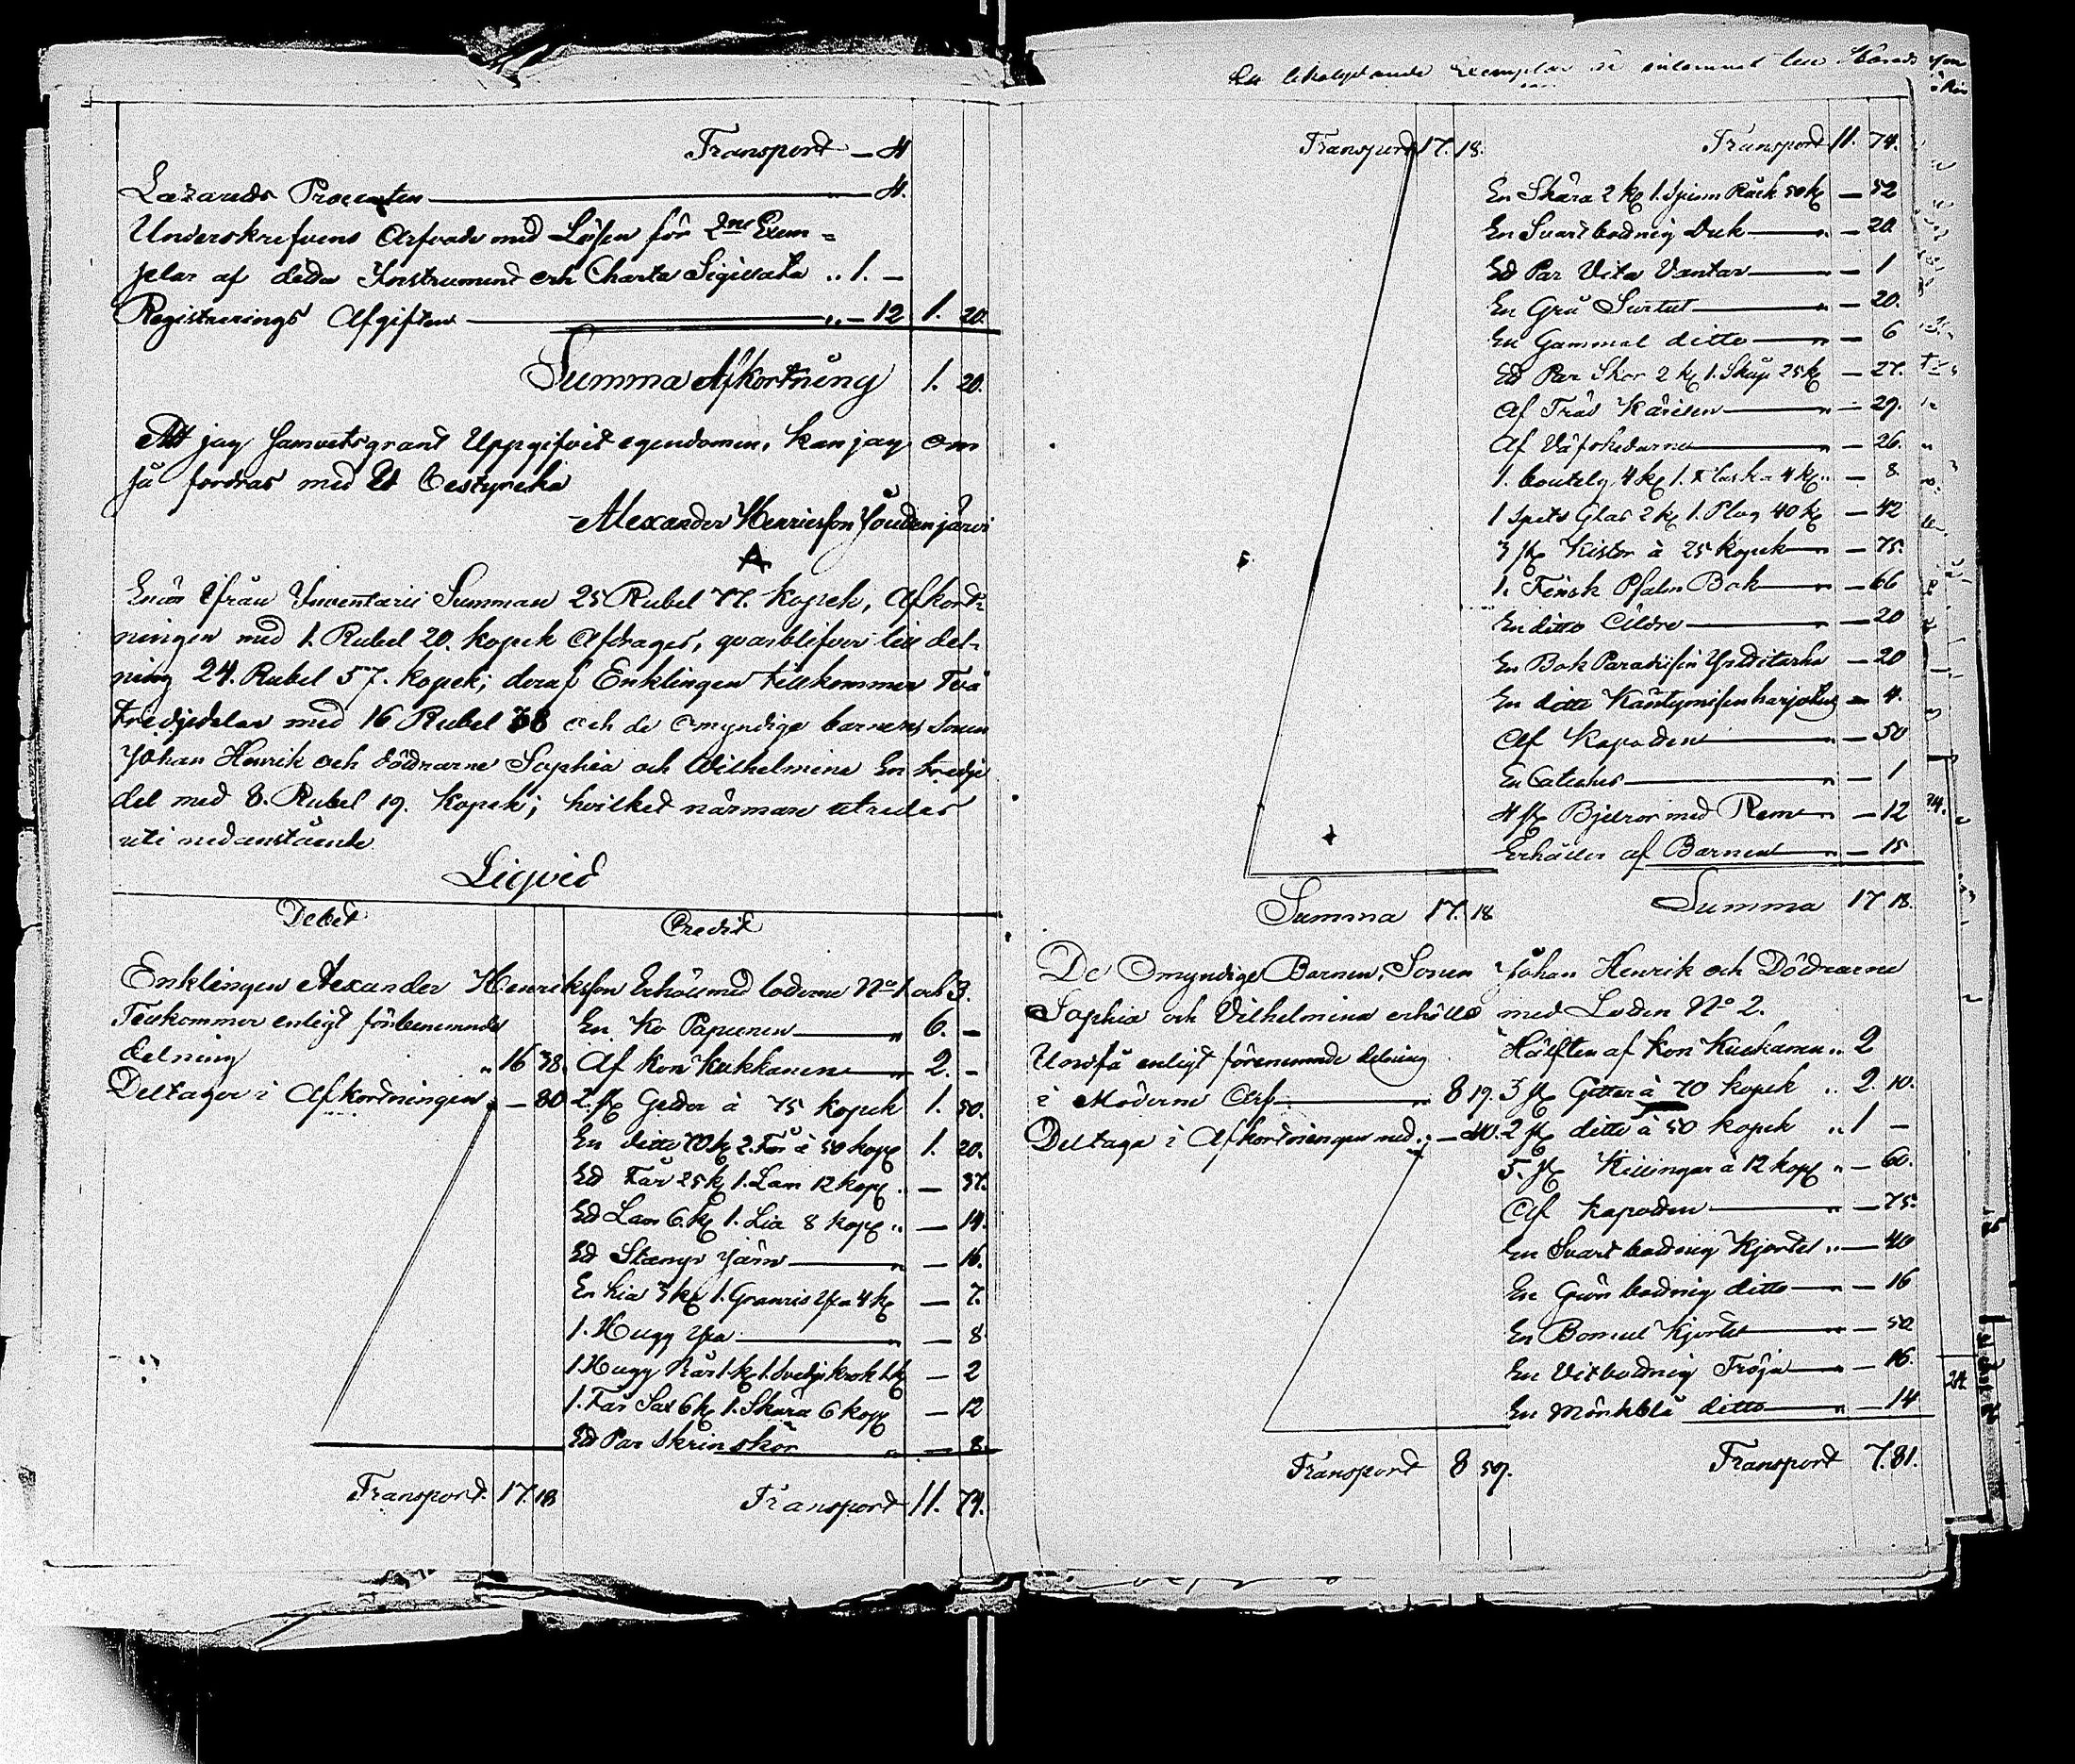 Transport — 4
Lazaretts Procenten — 4.
Underskrifvens Arfvode med Lösen för 2ne Exem=
plar af detta Instrument och Charta Sigillata „ 1. —
Registrerings Afgiften „ — 12 1. 20.
Summa Afkortning 1. 20.
Att jag samvetsgrant Uppgifvit egendomen, kan jag om
så fordras med Ed bestyrcka
Alexander Henricsson Joudenjärvi
A
Enär ifrån Inventarii Summan 25 Rubel 77. Kopek, Afkort-
ningen med 1. Rubel 20. Kopek Afdrages, qvarblifver till del-
ning 24. Rubel 57. Kopek; deraf Enklingen tillkommer Två
tredjedelar med 16 Rubel 38 och de omyndige barnens Sonen
Johan Henrik och Döttrarne Sophia och Wilhelmina En tredje
del med 8. Rubel 19. Kopek; hvilket närmare utredes
uti nedanstående
Liqvid
Debet Credit
Enklingen Alexander Henriksson Erhöll med loderne No 1 och 3.
Tillkommer enligt förbenemnde
delning „ 16 38.
Deltager i Afkortningen „ — 80
En Ko Papunen „ 6. —
Af kon Kukkanen „ 2. —
2. st Getter à 75 kopek 1. 50.
En ditto 70 k 2. Får à 50 kop 1. 20.
Ett Får 25 k 1. Lam 12 kop „ — 37.
Ett Lam 6. k 1. Lia 8 kop „ — 14.
Ett Stamp Järn „ — 16.
En Lia 3 k 1. Granris Yxa 4 k — 7.
1. Hugg Yxa — 8
1 Hugg 1. k 1. Svedje krok 1 k — 2
1. Får Sax 6 k 1. Skära 6 kop — 12
Ett Par Skrinskor „ — 8.
Transport 17. 18 Transport 11. 74.
Ett likalydande Exemplar är inlemnat till Härads
Transport 17. 18. Transport 11. 74.
En Skära 2 k 1. Spinn Råck 50 k — 52
En Svart bottnig Duk „ — 20
Ett Par Vita Vantar — 1
En Grå Surtut — 20.
En Gammal ditto „ — 6
Ett Par Skor 2 k 1. Skåp 25 k — 27.
Af Träd Kärilen „ — 29.
Af Väfskedarne „ — 26.
1. boutelg 4 k 1. Flaska 4 k „ — 8
1 Spets Glas 2 k 1. Plog 40 k — 42
3 st Kistor à 25 kopek „ — 75.
1. Finsk Psalm Bok „ — 66
En ditto Äldre „ — 20
En Bok Paradisin Yrttitarha — 20
En ditto — 4.
Af Kapotten „ — 50
En Cateches „ — 1
4 st Bjellror med Rem „ — 12
Erhåller af Barnen „ — 15
Summa 17. 18 Summa 17 18.
De Omyndige Barnen, Sonen Johan Henrik och Döttrarne
Sophia och Vilhelmina erhöllo med Lotten No 2.
Undfå enligt förenemnde delning
i Möderne Arf „ 8 19.
Deltaga i Afkortningen med „ — 40.
Hälften af kon Kukkanen „ 2
3 st Getter à 70 kopek „ 2. 10.
2 st ditto à 50 kopek „ 1 —
5. st Killingar à 12 kop „ — 60.
Af Kapotten „ — 75.
En Svart bottnig Kjortel „ — 40
En Grön bottnig ditto „ — 16
En Bomull Kjortel „ — 50
En Vit bottnig Tröja „ — 16.
En Mörkblå ditto „ — 14
Transport 8 59. Transport 7. 81.